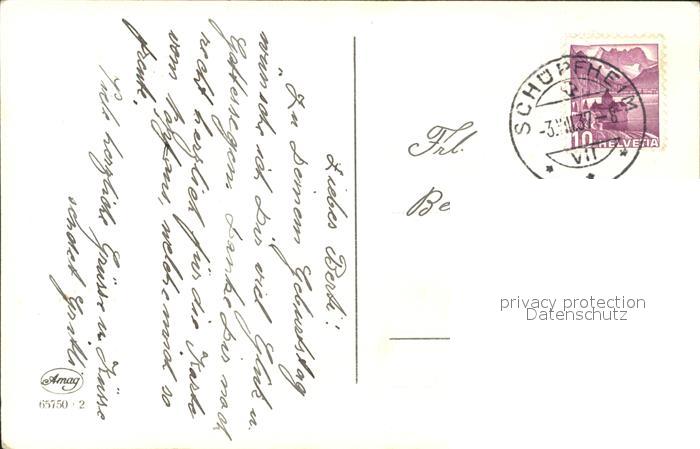 Liebes Berti!
"Zu Deinem Geburtstag
wünsche ich Dir viel Glück u.
Gottessegen. Danke Dir noch
recht herzlich für die Karte
vom welche mich so
freute.
Viele herzliche Grüsse u. Küsse
sendet
Amag
65750 · 2
Frl.
Be
SCHÜPFHEIM
37-8
VII
10 HELVETIA
privacy protection
Datenschutz